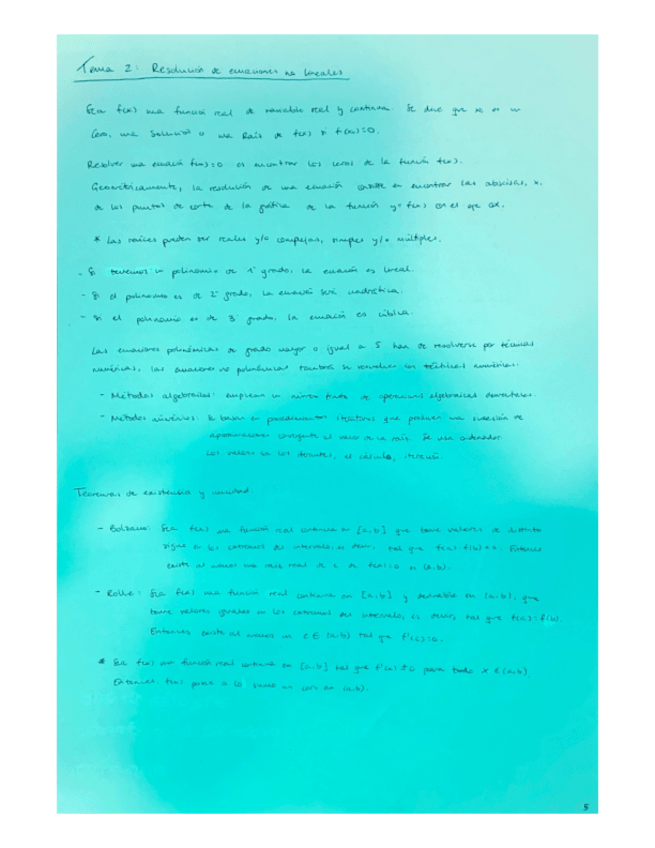 Tema 2: Resolución de ecuaciones no lineales
Sea f(x) una función real de variable real y continua. Se dice que x₀ es un
Cero, una Solución o una Raíz de f(x) si f(x₀)=0.
Resolver una ecuación f(x)=0 es encontrar los ceros de la función f(x).
Geométricamente, la resolución de una ecuación consiste en encontrar las abscisas, x,
de los puntos de corte de la gráfica de la función y=f(x) con el eje OX.
* Las raíces pueden ser reales y/o complejas, simples y/o múltiples.
- Si tenemos un polinomio de 1º grado, la ecuación es lineal.
- Si el polinomio es de 2º grado, la ecuación será cuadrática.
- Si el polinomio es de 3º grado, la ecuación es cúbica.
Las ecuaciones polinómicas de grado mayor o igual a 5 han de resolverse por técnicas
numéricas, las ecuaciones no polinómicas también se resuelven con técnicas numéricas.
- Métodos algebraicos: emplean un número finito de operaciones algebraicas elementales.
- Métodos numéricos: Se basan en procedimientos iterativos que producen una sucesión de
aproximaciones convergente al valor de la raíz. Se usa ordenador.
Los valores son los iterantes, el cálculo, iteración.
Teoremas de existencia y unicidad.
- Bolzano: Sea f(x) una función real continua en [a,b] que tome valores de distinto
signo en los extremos del intervalo, es decir, tal que f(a)·f(b)<0. Entonces
existe al menos una raíz real de f(x)=0 en (a,b).
- Rolle: Sea f(x) una función real continua en [a,b] y derivable en (a,b), que
tome valores iguales en los extremos del intervalo, es decir, tal que f(a)=f(b).
Entonces existe al menos un c∈(a,b) tal que f'(c)=0.
* Sea f(x) una función real continua en [a,b] tal que f'(x)≠0 para todo x∈(a,b)
Entonces, f(x) posee a lo sumo un cero en (a,b).
5